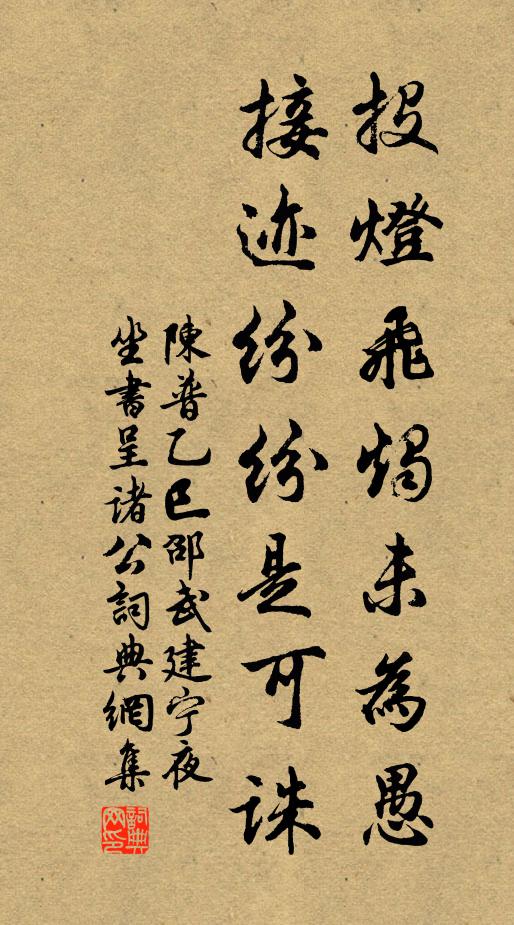 投燈飛燭未為愚
接迹紛紛是可誅
陳普乙巳邵武建宁夜
坐書呈諸公詞典網集
詞典
网印